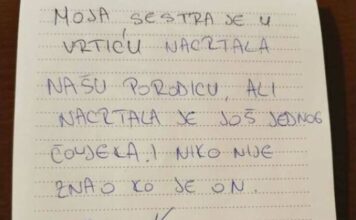 MOJA SESTRA JE U
VRTIĆU NACRTALA
NAŠU PORODICU, ALI
NACRTALA JE JOŠ JEDNOG
ČOVJEKA I NIKO NIJE
ZNAO KO JE ON.